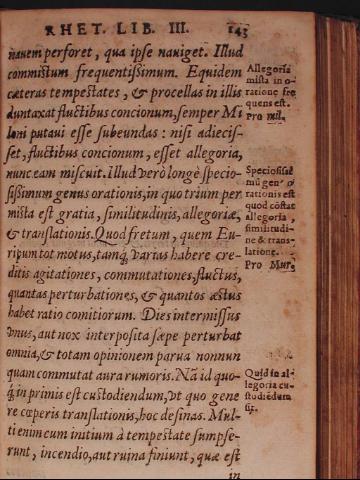 RHET. LIB. III. 143
nauem perforet, qua ipse nauiget. Illud
commistum frequentissimum. Equidem
cæteras tempestates, & procellas in illis
duntaxat fluctibus concionum, semper Mi
loni putaui esse subeundas: nisi adiecis-
set, fluctibus concionum, esset allegoria,
nunc eam miscuit. Illud verò longè specio-
sissimum genus orationis, in quo trium per
mista est gratia, similitudinis, allegoriæ,
& translationis. Quod fretum, quem Eu-
ripum tot motus, tamq́; varias habere cre-
ditis agitationes, commutationes, fluctus,
quantas perturbationes, & quantos æstus
habet ratio comitiorum. Dies intermissus
vnus, aut nox interposita sæpe perturbat
omnia, & totam opinionem parua nonnun
quam commutat aura rumoris. Nā id quo-
q́; in primis est custodiendum, vt quo gene
re cœperis translationis, hoc desinas. Mul-
ti enim cum initium à tempestate sumpse-
runt, incendio, aut ruina finiunt, quæ est
in
Allegoria
mista in o-
ratione fre
quens est.
Pro mil.
Speciosissi
mū gen9 o
rationis est
quod cōstat
allegoria,
similitudi-
ne & trans-
latione.
Pro Mur.
Quid in al-
legoria cu-
stodiēdum
sit.